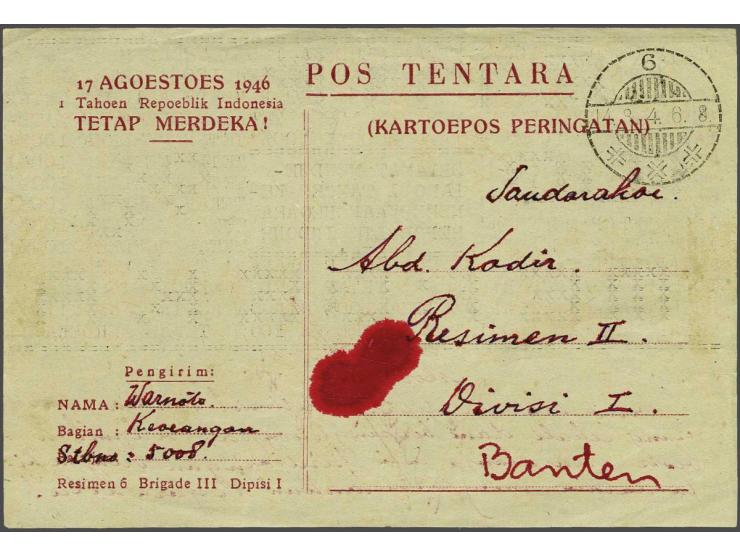 17 AGOESTOES 1946
1 Tahoen Repoeblik Indonesia
TETAP MERDEKA!
POS TENTARA
(KARTOEPOS PERINGATAN)
6
8.4.6.8
Saudarakoe.
Abd. Kadir.
Resimen II.
Divisi I.
Banten
Pengirim:
NAMA: Warnoto.
Bagian: Keoeangan
Stbno: 5008.
Resimen 6 Brigade III Dipisi I